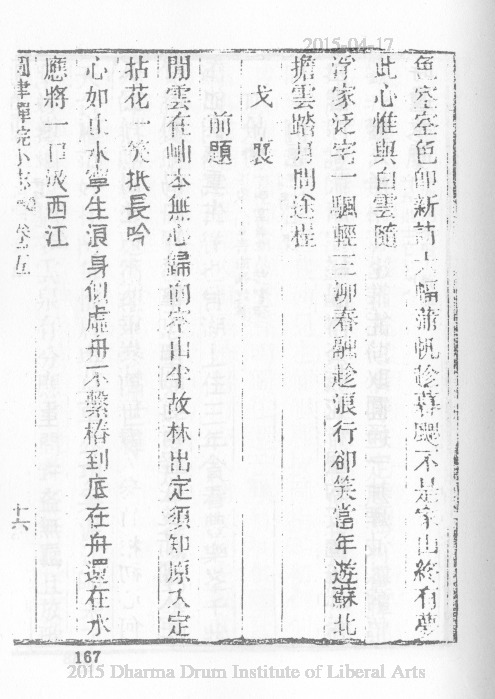 2015-04-17
色空空色即新詩大幅蒲帆趁暮颸不是家山終有夢
此心惟與白雲隨
浮家泛宅一颿輕三泖春融趁浪行卻笑當年遊蘇北
擔雲踏月問途程
戈襄
前題
閒雲在岫本無心歸向空山半故林出定須知原入定
拈花一笑抵長吟
心如止水寧生浪身似虛舟不繫樁到底在舟還在水
應將一口汲西江
津禪院小志 卷五
十六
167
2015 Dharma Drum Institute of Liberal Arts